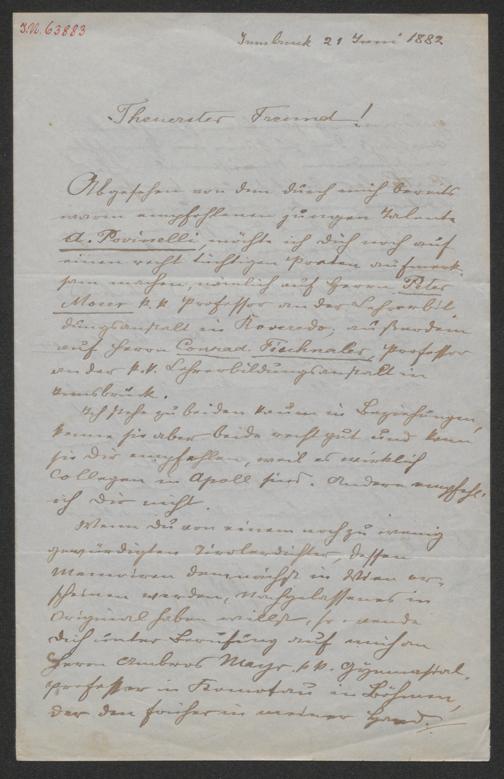 I.N. 63883
Innsbruck 21 Juni 1882
Theuerster Freund!
Abgesehen von dem durch mich bereits
warm empfohlenen jungen Talente
A. Povinelli, möchte ich Dich noch auf
einen recht tüchtigen Poeten aufmerk-
sam machen, nämlich auf Herrn Peter
Moser k.k. Professor an der Lehrerbil-
dungsanstalt in Roveredo, außerdem
auf Herrn Conrad Fischnaler, Professor
an der k.k. Lehrerbildungsanstalt in
Innsbruck.
Ich stehe zu beiden kaum in Beziehungen,
kenne sie aber beide recht gut und kann
sie Dir empfehlen, weil es wirklich
Collegen in Apoll sind. Andere empfehl'
ich Dir nicht.
Wenn Du von einem noch zu wenig
gewürdigten Tirolerdichter, dessen
Memoiren demnächst in Wien er-
scheinen werden, Nachgelassenes im
Original haben willst, so wende
Dich unter Berufung auf mich an
Herrn Ambros Mayr k.k. Gymnasial-
professor in Komotau in Böhmen,
der den früher in meiner Hand